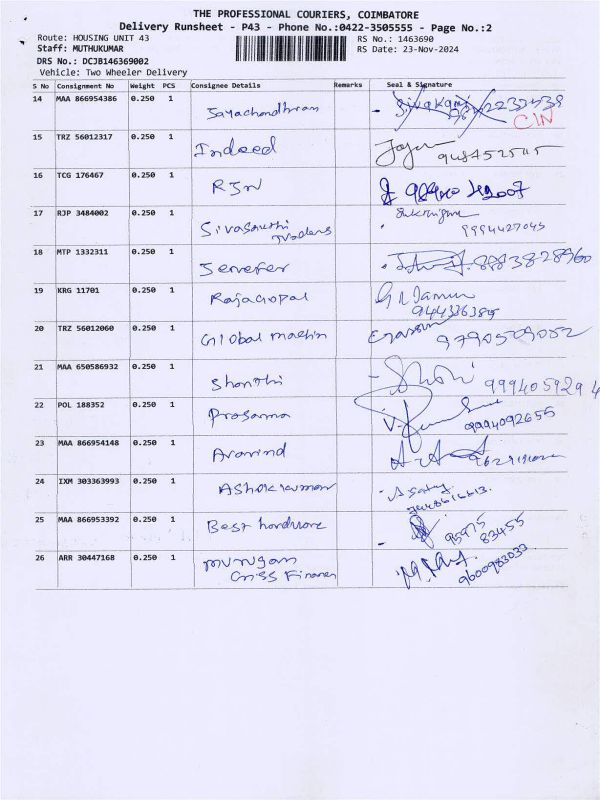 THE PROFESSIONAL COURIERS, COIMBATORE
Delivery Runsheet - P43 - Phone No.:0422-3505555 - Page No.:2
Route: HOUSING UNIT 43 RS No.: 1463690
Staff: MUTHUKUMAR RS Date: 23-Nov-2024
DRS No.: DCJB146369002
Vehicle: Two Wheeler Delivery
S No Consignment No Weight PCS Consignee Details Remarks Seal & Signature
14 MAA 866954386 0.250 1 Jayachandhran Sivakami
CIN
15 TRZ 56012317 0.250 1 Indeed
16 TCG 176467 0.250 1 RJN
17 RJP 3484002 0.250 1 Sivasakthi
Traders 9994427045
18 MTP 1332311 0.250 1 Jenefer 8883828960
19 KRG 11701 0.250 1 Rajagopal
20 TRZ 56012060 0.250 1 Global machin 9790509052
21 MAA 650586932 0.250 1 Shanthi 9994059294
22 POL 188352 0.250 1 Prasanna 9994092655
23 MAA 866954148 0.250 1 Aravind
24 IXM 303363993 0.250 1 Ashokkumar
25 MAA 866953392 0.250 1 Best hardware 95975
83455
26 ARR 30447168 0.250 1 murugan
9600983033